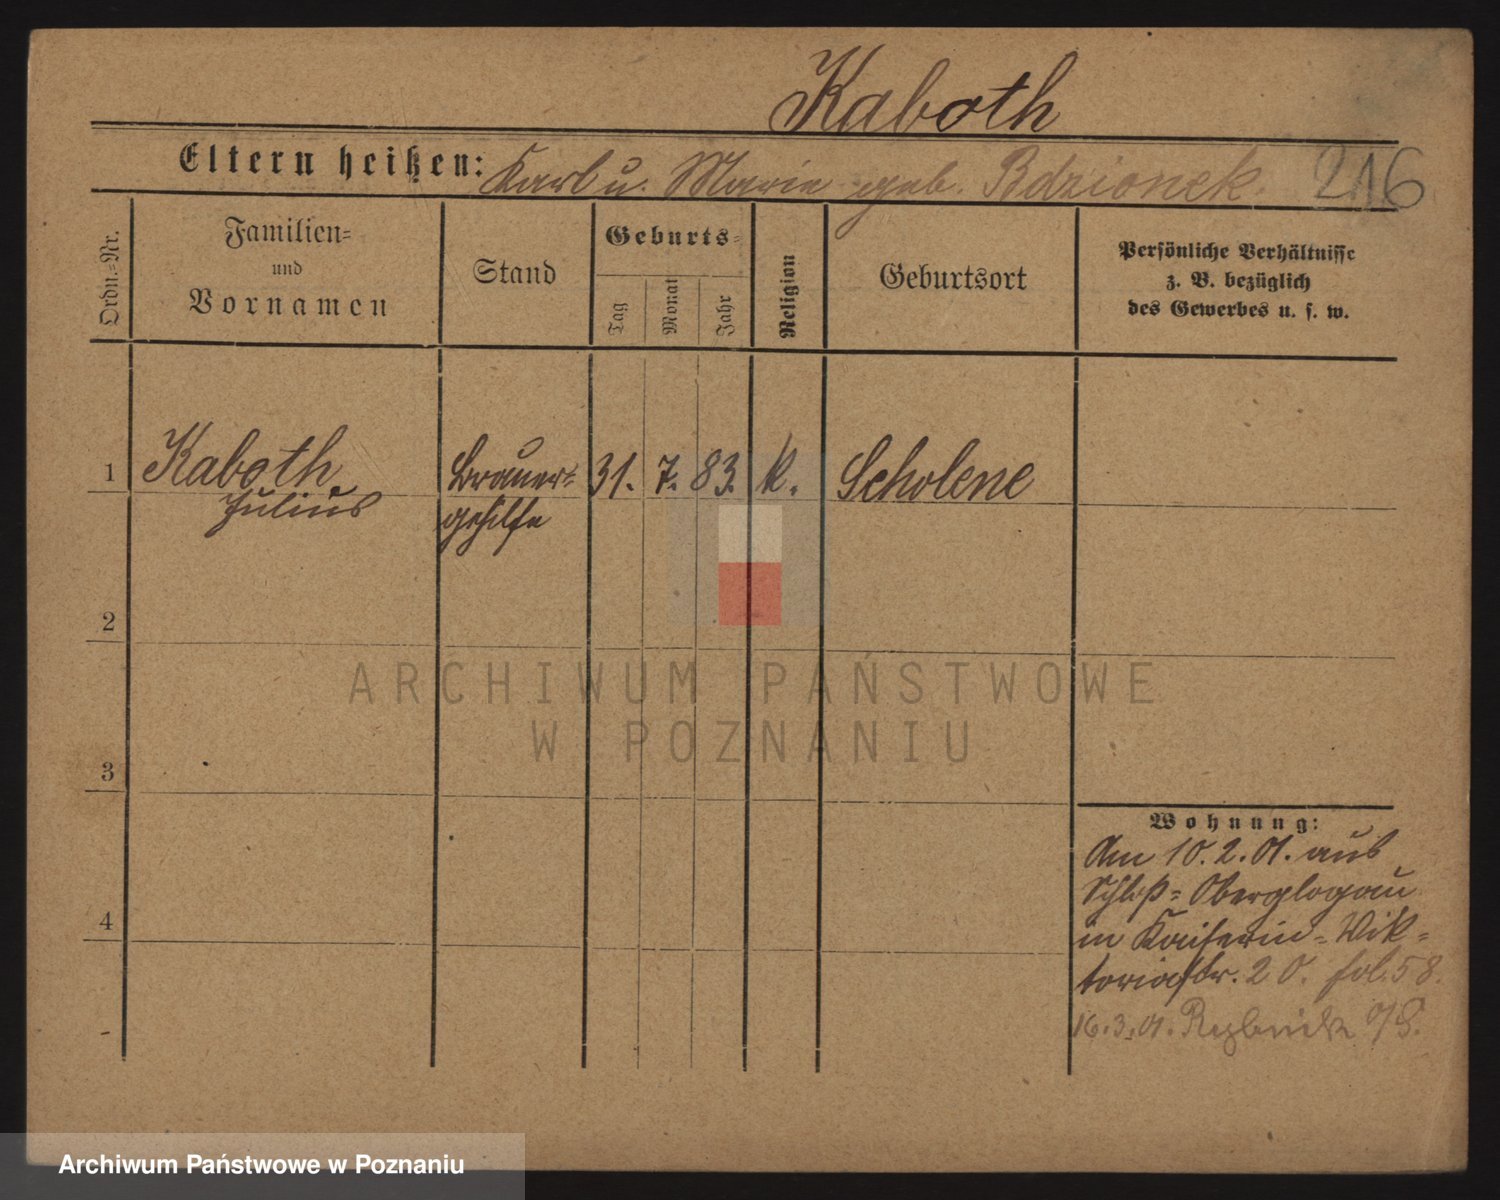 Kaboth
Eltern heißen: Karl u. Marie geb. Bdzionek. 216
Ordn.=Nr.
Familien=
und
Vornamen
Stand
Geburts=
Tag
Monat
Jahr
Religion
Geburtsort
Persönliche Verhältnisse
z. B. bezüglich
des Gewerbes u. s. w.
1 Kaboth Brauer= 31. 7. 83. k. Scholene
Julius gehilfe
2
ARCHIWUM PAŃSTWOWE
W POZNANIU
3
Wohnung:
Am 10.2.01. aus
Schloß=Oberglogau
4
in Kaiserin=Vik=
toriastr. 20. fol. 58.
16.3.01. Rybnik O/S.
Archiwum Państwowe w Poznaniu